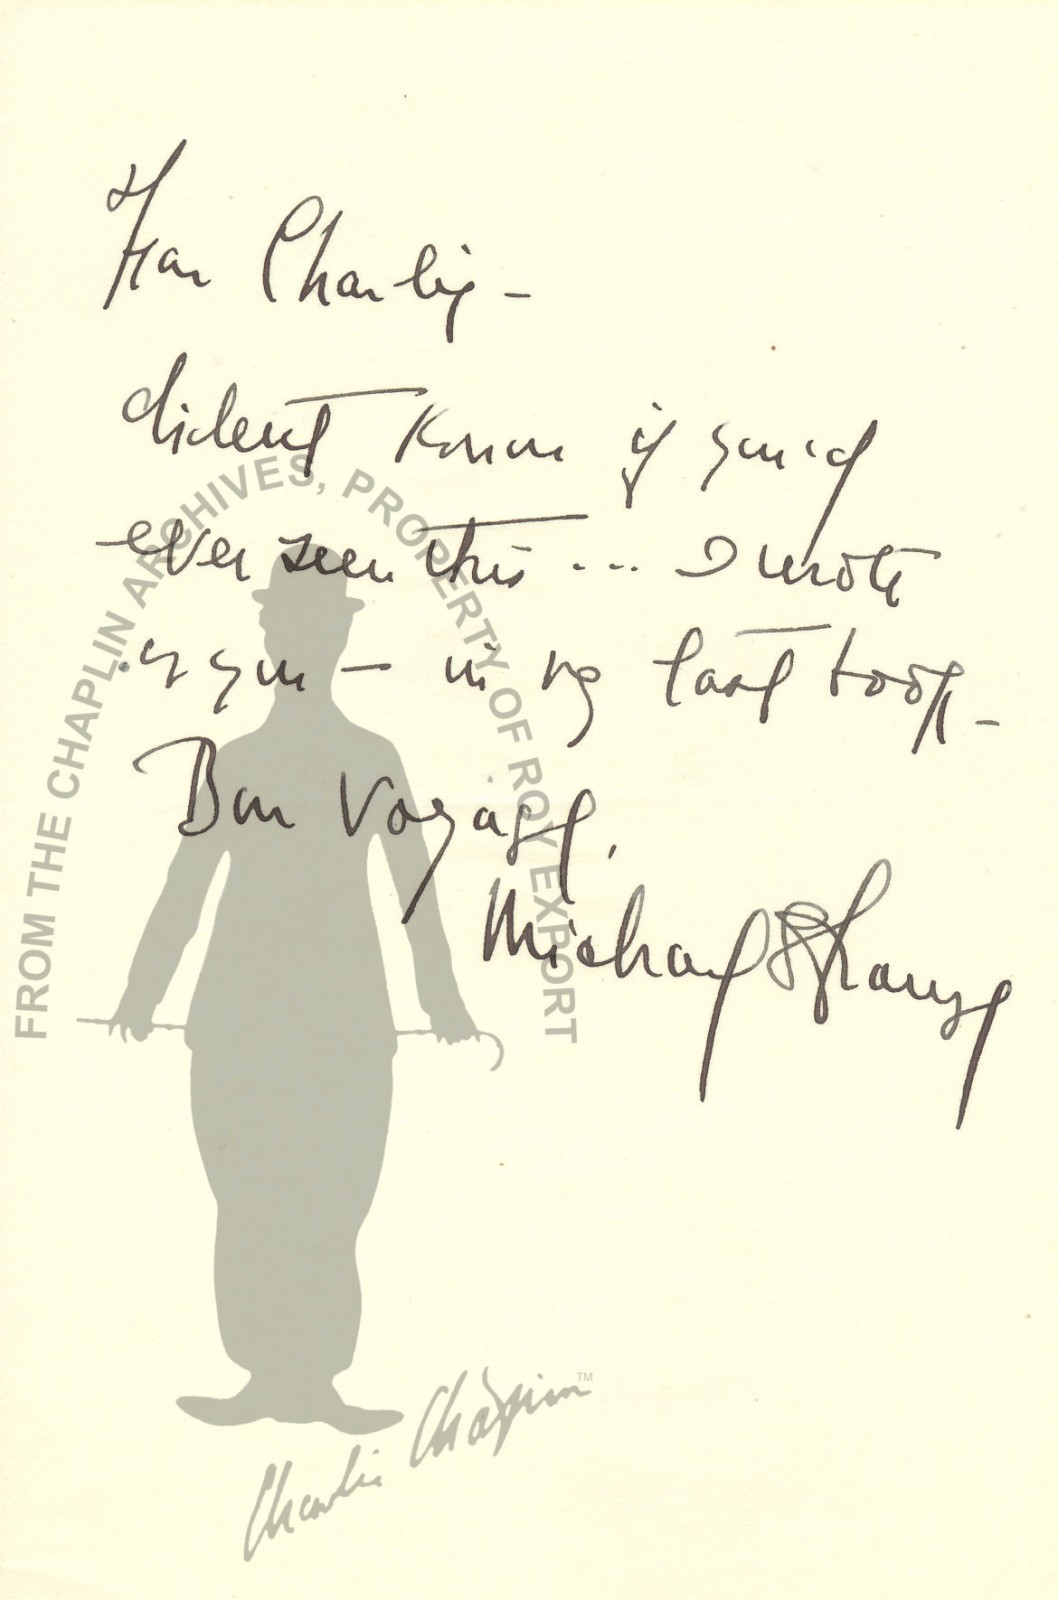 Dear Charlie –
dident know if you'd
ever seen this ... I wrote
of you – in my last book –
Bon Voyage,
Michael
FROM THE CHAPLIN ARCHIVES, PROPERTY OF ROY EXPORT
Charlie Chaplin™